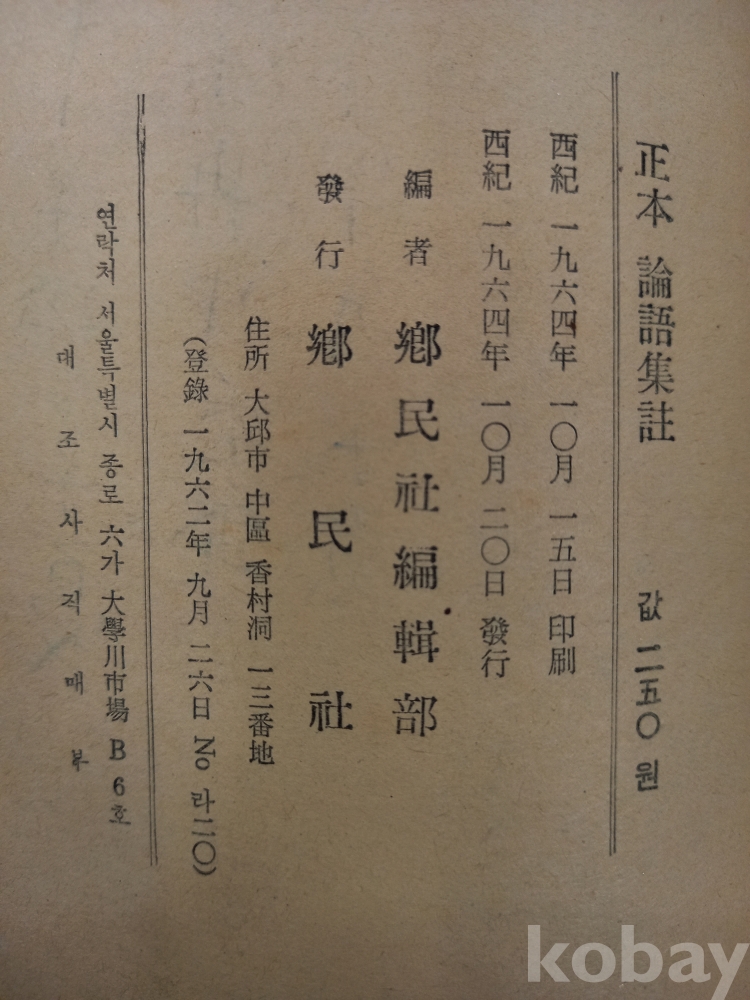 正本 論語集註 값 二五〇원
西紀 一九六四年 一〇月 一五日 印刷
西紀 一九六四年 一〇月 二〇日 發行
編者 鄕民社編輯部
發行 鄕民社
住所 大邱市 中區 香村洞 一三番地
(登錄 一九六二年 九月 二六日 No 라二〇)
연락처 서울특별시 종로 六가 大學川市場 B 6호
대조사직매부
kobay